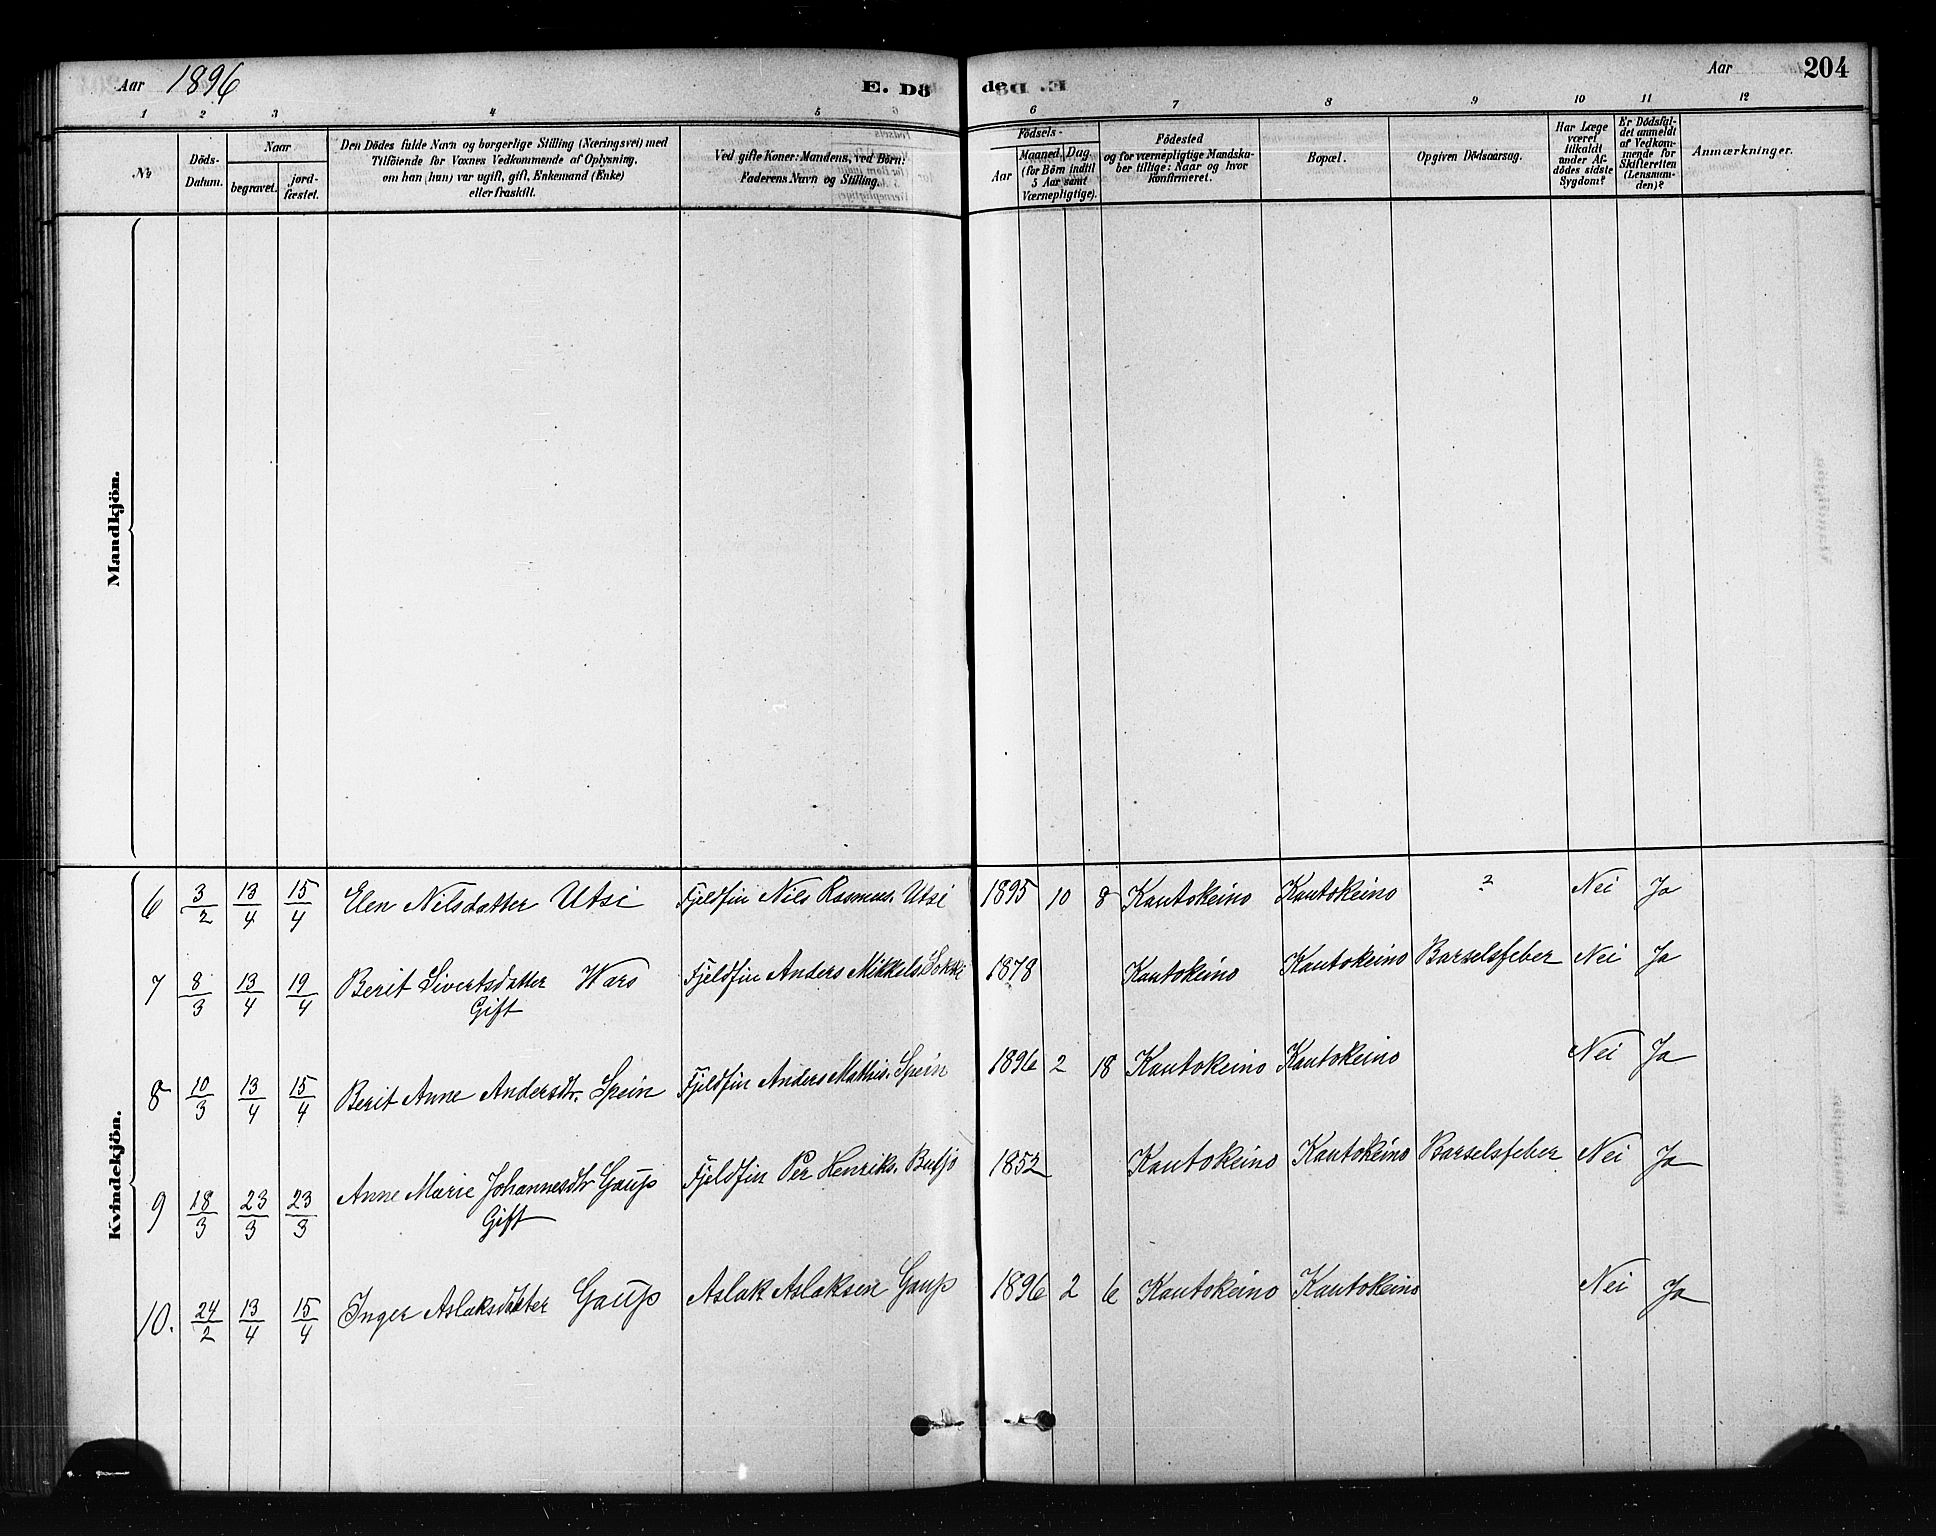 Aar 1896
E. Dö
de
Aar
204
1 2 3 4 5 6
6 7 8 9 10 11 12
No
Döds-
Datum.
Naar
begravet.
jord-
fæstet.
Den Dödes fulde Navn og borgerlige Stilling (Næringsvei) med
Tilföiende for Voxnes Vedkommende af Oplysning,
om han (hun) var ugift, gift, Enkemand (Enke)
eller fraskilt.
Ved gifte Koner: Mandens, ved Børn:
Faderens Navn og Stilling.
Födsels-
Aar
Maaned. Dag
(for Børn indtil
5 Aar samt
Værnepligtige).
Födested
og for værnepligtige Mandska-
ber tillige: Naar og hvor
Konfirmeret.
Bopæl.
Opgiven Dödsaarsag.
Har Læge
været
tilkaldt
under Af-
dödes sidste
Sygdom?
Er Dödsfal-
det anmeldt
af Vedkom-
mende for
Skifteretten
(Lensman-
den)?
Anmærkninger.
Mandkjön.
Kvindekjön.
6 3/2 13/4 15/4 Elen Nilsdatter Utsi Fjeldfin Nils Rasmus. Utsi 1895 10 8 Kautokeino Kautokeino ? Nei Ja
7 8/3 13/4 19/4 Berit Sivertsdatter Wars Fjeldfin Anders Mikkels. 1878 Kautokeino Kautokeino Barselsfeber Nei Ja
Gift
8 10/3 13/4 15/4 Berit Anne Andersdtr. Spein Fjeldfin Anders Mathis. Spein 1896 2 18 Kautokeino Kautokeino Nei Ja
9 18/3 23/3 23/3 Anne Marie Johannesdtr Gaup Fjeldfin Per Henriks. 1852 Kautokeino Kautokeino Barselsfeber Nei Ja
Gift
10. 24/2 13/4 15/4 Inger Aslaksdatter Gaup Aslak Aslaksen Gaup 1896 2 6 Kautokeino Kautokeino Nei Ja